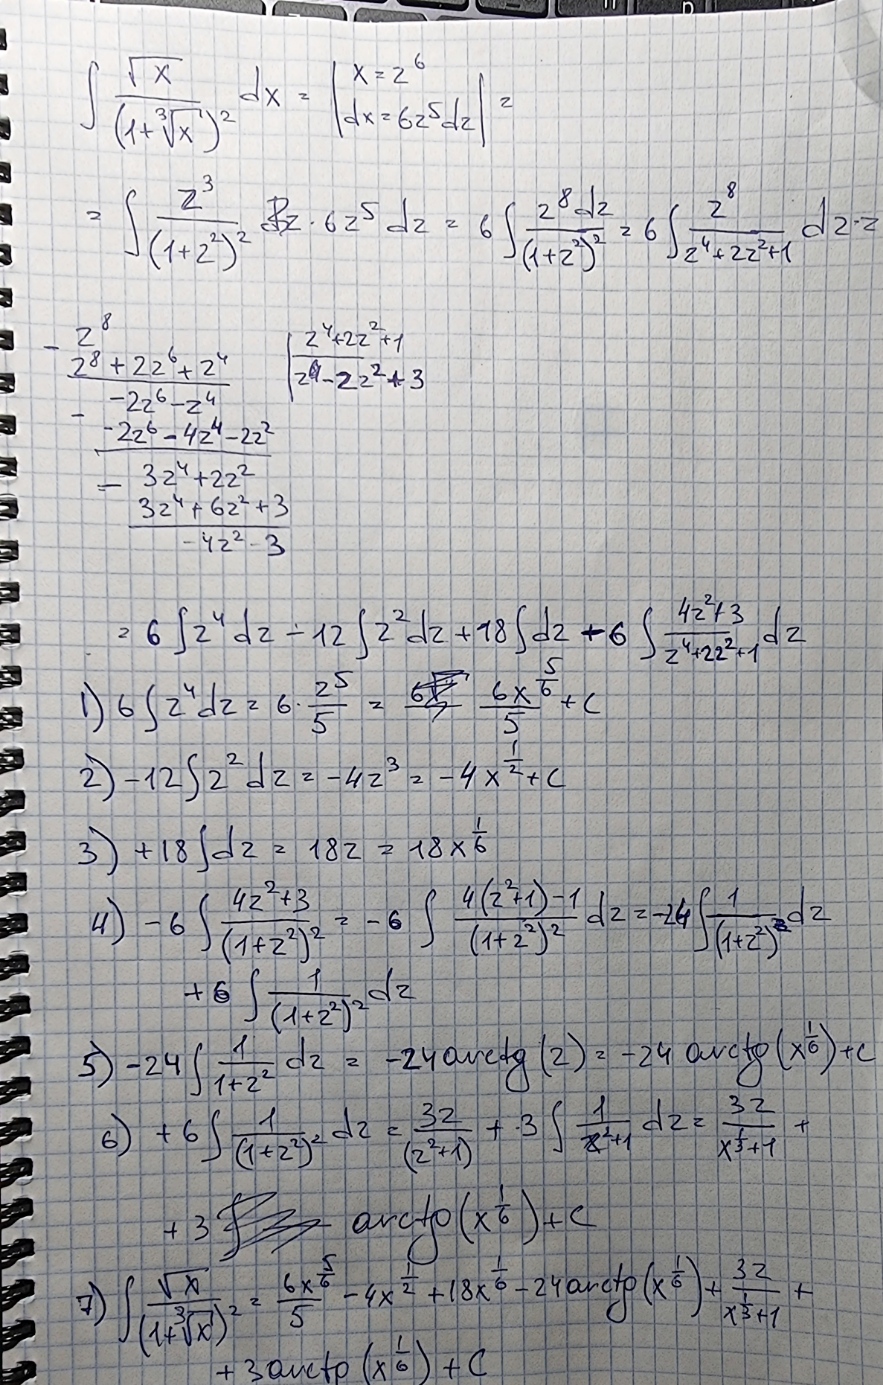 ∫ √x / (1+∛x)² dx = | x = z⁶
dx = 6z⁵dz | =
= ∫ z³ / (1+z²)² · 6z⁵ dz = 6 ∫ z⁸dz / (1+z²)² = 6 ∫ z⁸ / (z⁴+2z²+1) dz =
- z⁸ | z⁴+2z²+1
z⁸ + 2z⁶ + z⁴ | z⁴ - 2z² + 3
- -2z⁶ - z⁴
-2z⁶ - 4z⁴ - 2z²
- 3z⁴ + 2z²
3z⁴ + 6z² + 3
-4z² - 3
= 6 ∫ z⁴ dz - 12 ∫ z² dz + 18 ∫ dz - 6 ∫ (4z²+3) / (z⁴+2z²+1) dz
1) 6 ∫ z⁴ dz = 6 · z⁵/5 = 6x^(5/6) / 5 + C
2) -12 ∫ z² dz = -4z³ = -4x^(1/2) + C
3) +18 ∫ dz = 18z = 18x^(1/6)
4) -6 ∫ (4z²+3) / (1+z²)² = -6 ∫ (4(z²+1)-1) / (1+z²)² dz = -24 ∫ 1 / (1+z²) dz
+ 6 ∫ 1 / (1+z²)² dz
5) -24 ∫ 1 / (1+z²) dz = -24 arctg(z) = -24 arctg(x^(1/6)) + C
6) +6 ∫ 1 / (1+z²)² dz = 3z / (z²+1) + 3 ∫ 1 / (z²+1) dz = 3z / (x^(1/3)+1) +
+ 3 arctg(x^(1/6)) + C
7) ∫ √x / (1+∛x)² = 6x^(5/6) / 5 - 4x^(1/2) + 18x^(1/6) - 24 arctg(x^(1/6)) + 3z / (x^(1/3)+1) +
+ 3 arctg(x^(1/6)) + C